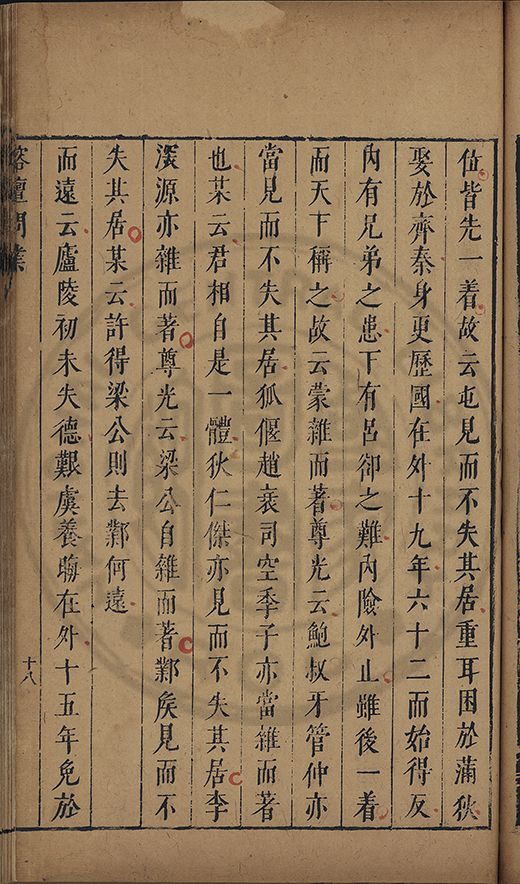 位皆先一着故云屯見而不失其居重耳困於蒲狄
娶於齊秦身更歷國在外十九年六十二而始得反
內有兄弟之患下有呂郤之難內險外止雖後一着
而天下稱之故云蒙雜而著尊光云鮑叔牙管仲亦
當見而不失其居狐偃趙衰司空季子亦當雜而著
也某云君相自是一體狄仁傑亦見而不失其居李
深源亦雜而著尊光云梁公自雜而著鄴矦見而不
失其居某云許得梁公則去鄴何遠
而遠云廬陵初未失德艱虞養晦在外十五年免於
榕壇問業
十八